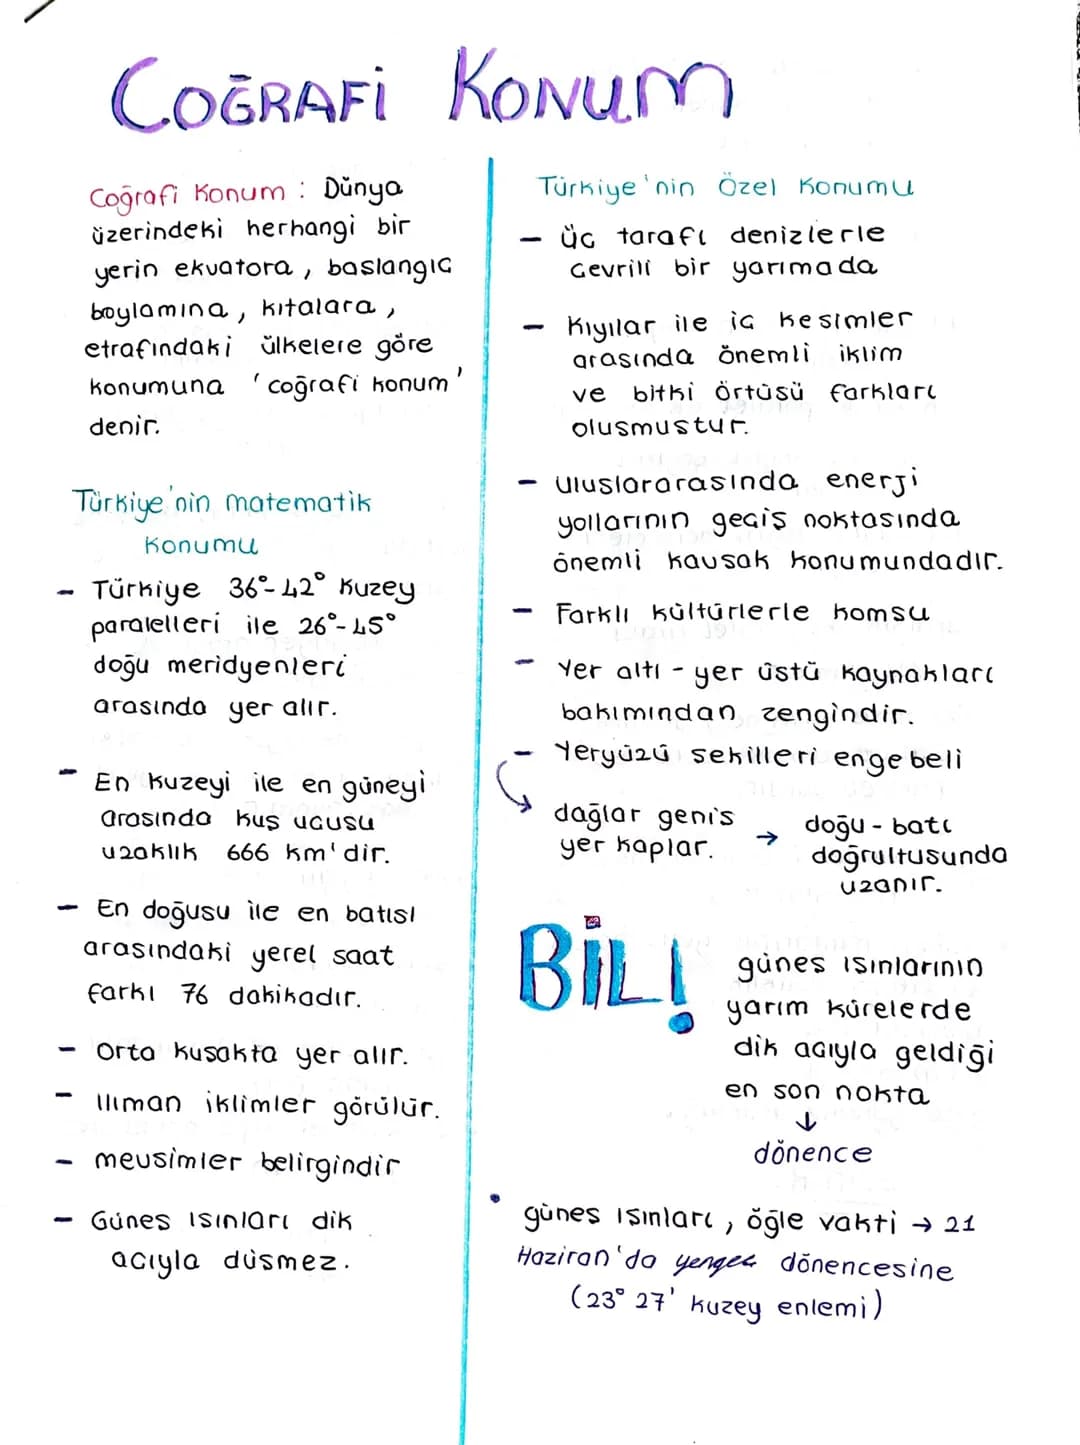 COĞRAFİ KONUM
Coğrafi Konum : Dünya
üzerindeki herhangi bir
yerin ekvatora, baslangıc
boylamına, kıtalara,
etrafındaki ülkelere göre
konumuna 'coğrafi konum'
denir.
Türkiye'nin matematik
Konumu
- Türkiye 36°-42° Kuzey
paralelleri ile 26°-45°
doğu meridyenleri
arasında yer alır.
- En Kuzeyi ile en güneyi
arasında kuş ucusu
uzaklık 666 km'dir.
- En doğusu ile en batısı
arasındaki yerel saat
farkı 76 dakikadır.
- Orta kusakta yer alır.
- Ilıman iklimler görülür.
- mevsimler belirgindir
- Günes ısınları dik
acıyla düsmez.
Türkiye'nin Özel Konumu
- üc tarafı denizlerle
cevrili bir yarımada
- Kıyılar ile ic kesimler
arasında önemli iklim
ve bitki örtüsü farkları
olusmustur.
- uluslararasında enerji
yollarının geciş noktasında
önemli kavsak konumundadır.
- Farklı kültürlerle komsu
- Yer altı - yer üstü kaynakları
bakımından zengindir.
- Yeryüzü sekilleri engebeli
dağlar genis
yer kaplar. → doğu - batı
doğrultusunda
uzanır.
BİL!
günes ısınlarının
yarım kürelerde
dik acıyla geldiği
en son nokta
↓
dönence
• günes ısınları, öğle vakti → 21
Haziran'da yengec dönencesine
(23° 27' kuzey enlemi)